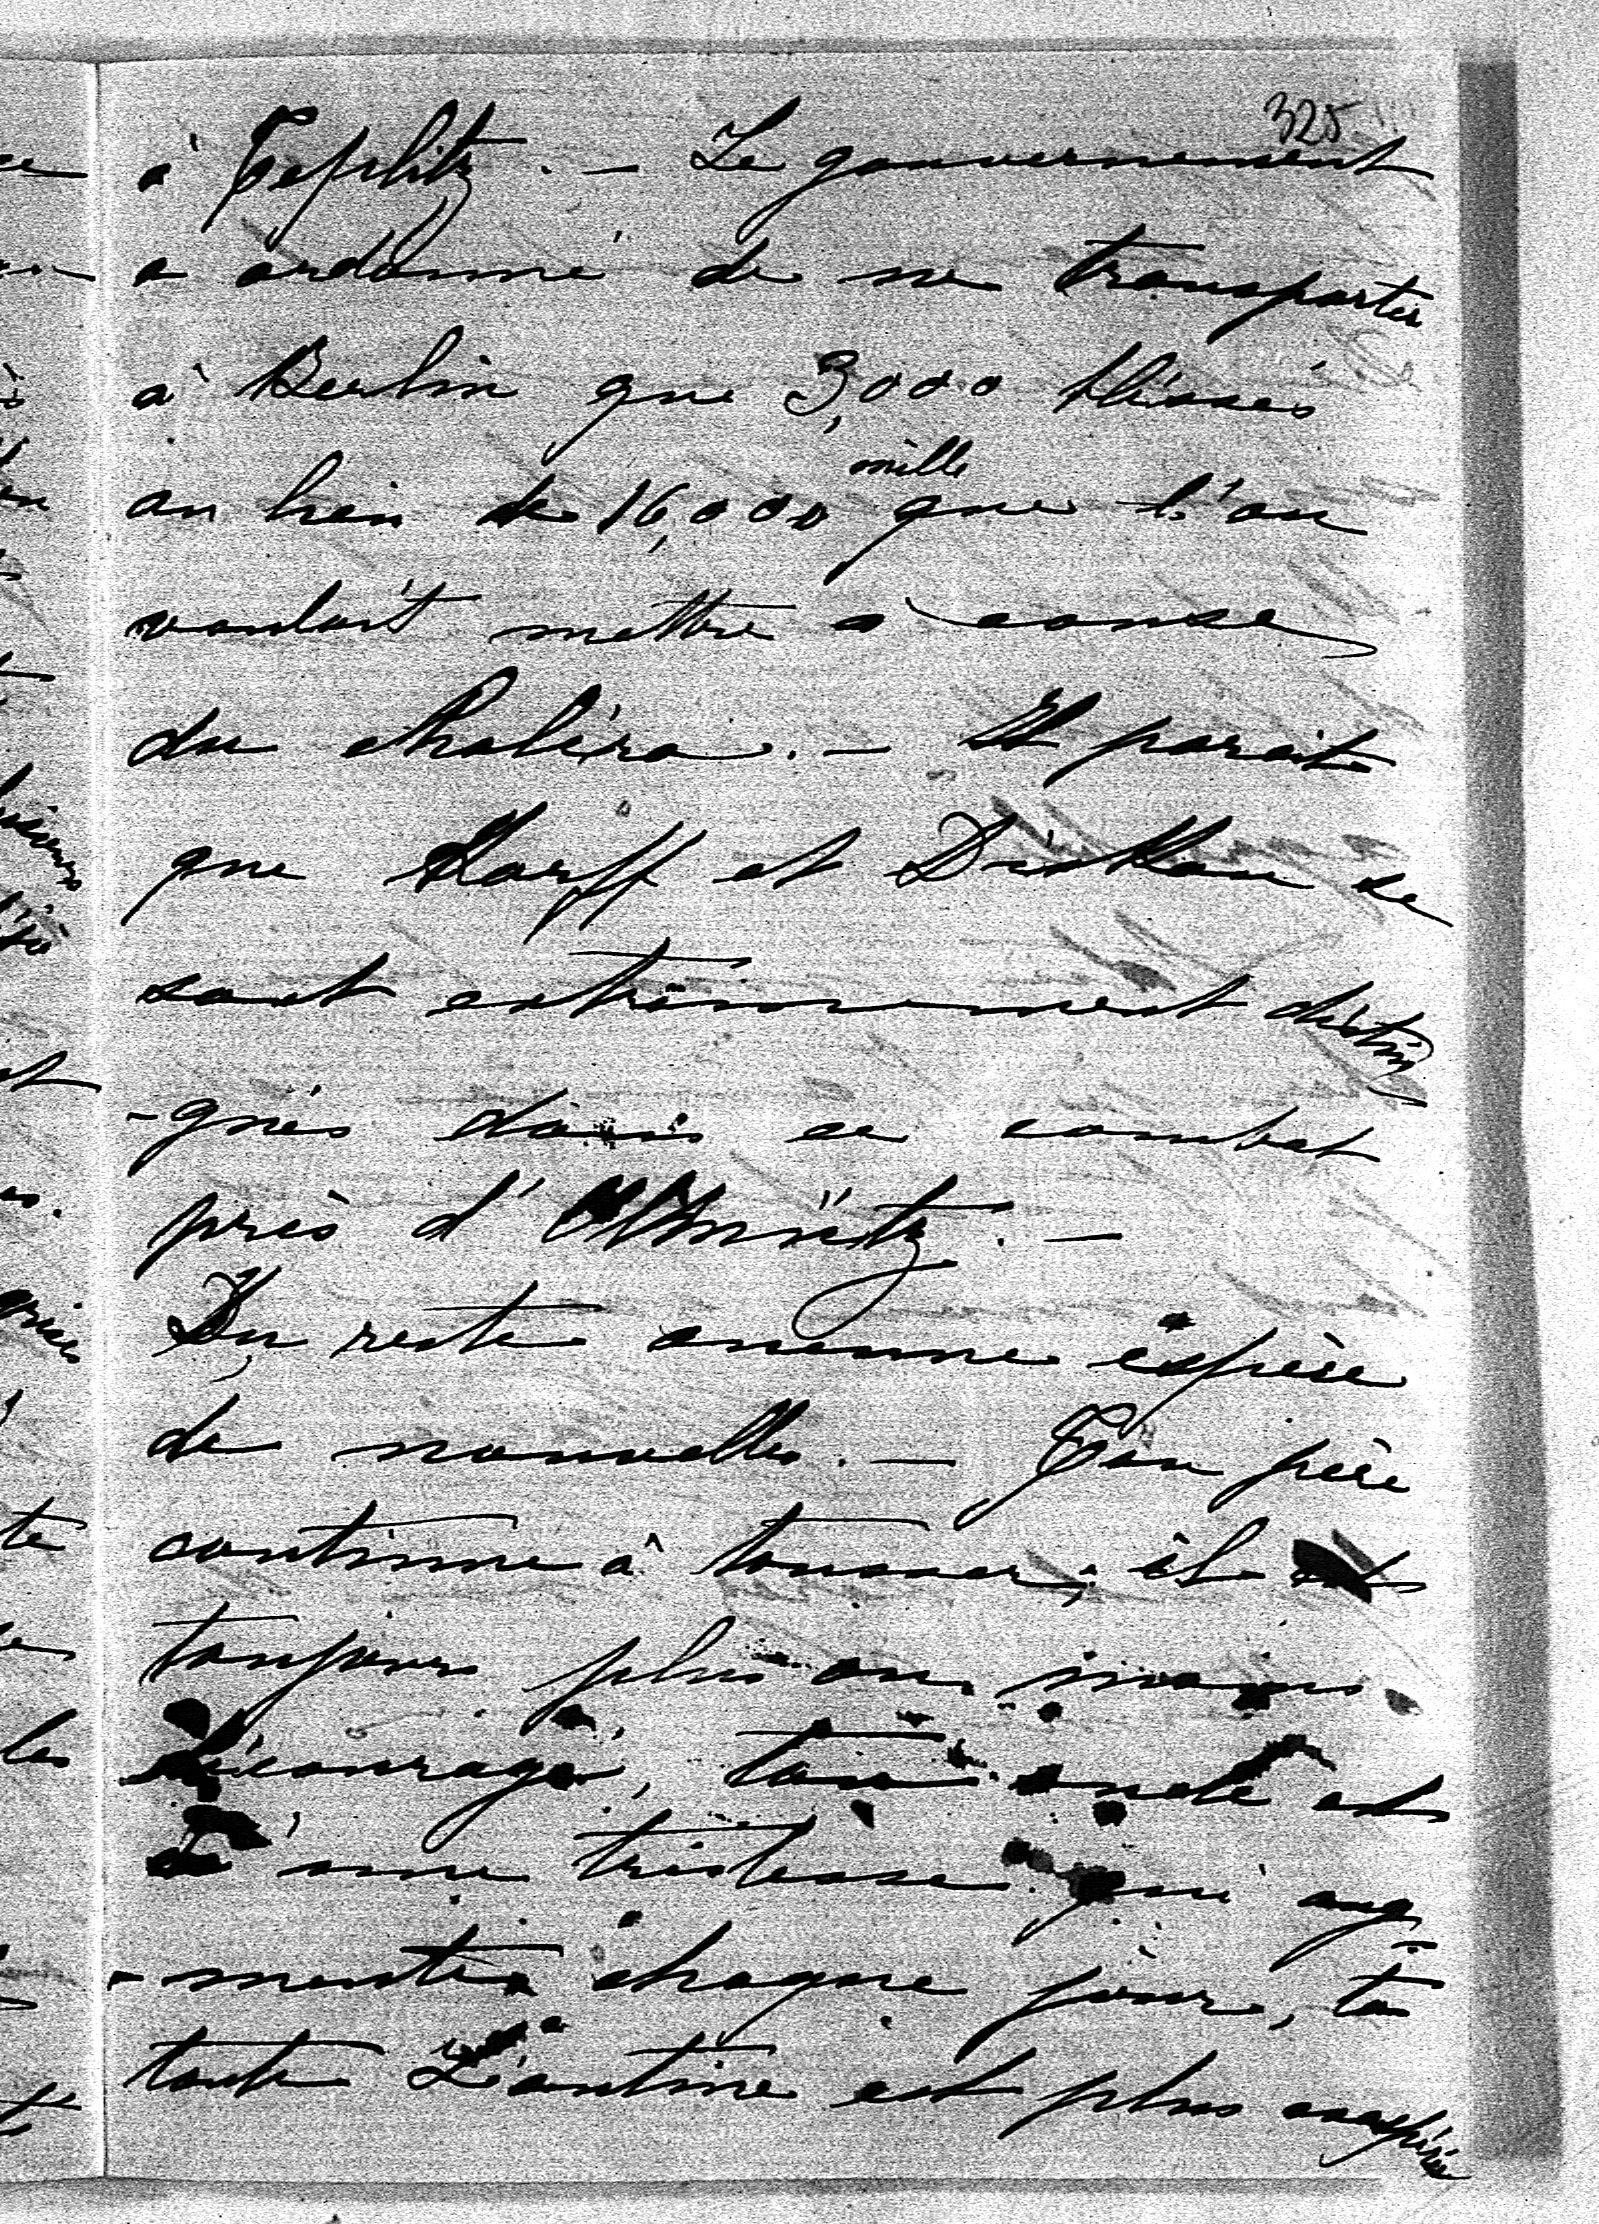 325
à Teplitz. — Le gouvernement
a ordonné de ne transporter
à Berlin que 3,000 bléssés
au lieu de 16,000 mille que l'on
voulait mettre à cause
du choléra. — Il parait
que Korff et se
sont extrêmement distin
-gués dans ce combat
près d'Olmütz. —
Du reste aucune espèce
de nouvelles. — Ton père
continue à tousser; il est
toujours plus ou moins
découragé, ton oncle est
d'une tristesse qui aug
-mente chaque jour, ta
tante Léontine est plus